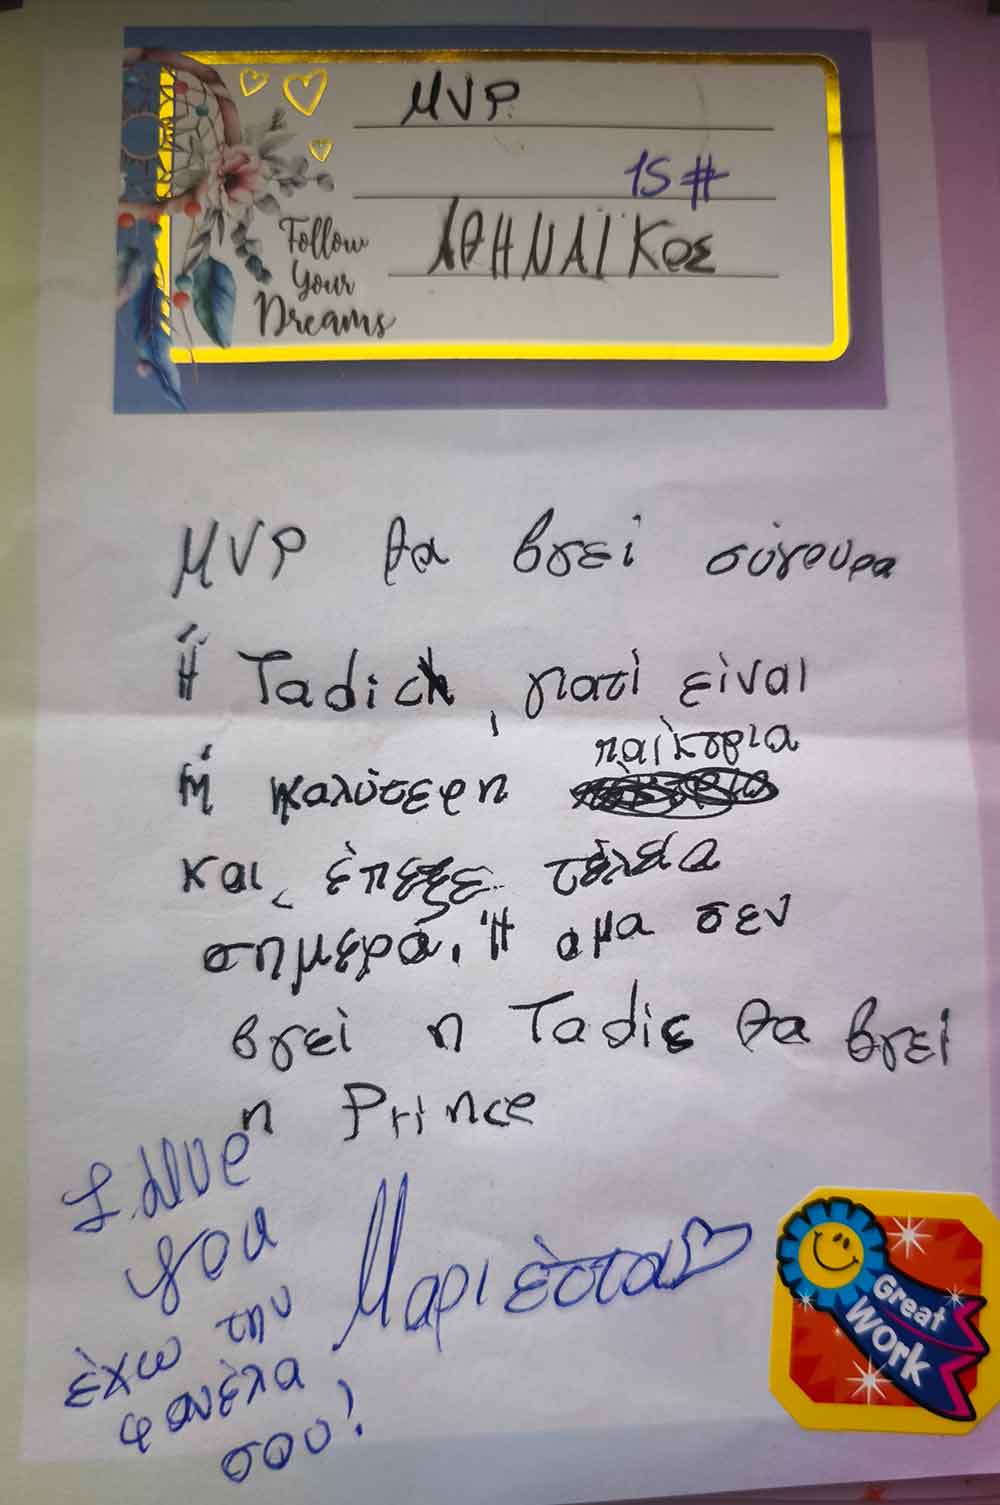 MVP
15#
ΑΘΗΝΑΙΚΟΣ
Follow
Your
Dreams
MVP θα βγει σύγουρα
ή Tadich, γιατί είναι
ή καλύτερη παίκτρια
και έπεξε τέλεια
σημερά. Ή αμα δεν
βγεί η Tadic θα βγεί
η Prince
I love
you
Μαριέττα
έχω την
φανέλα
σου!
Great
Work